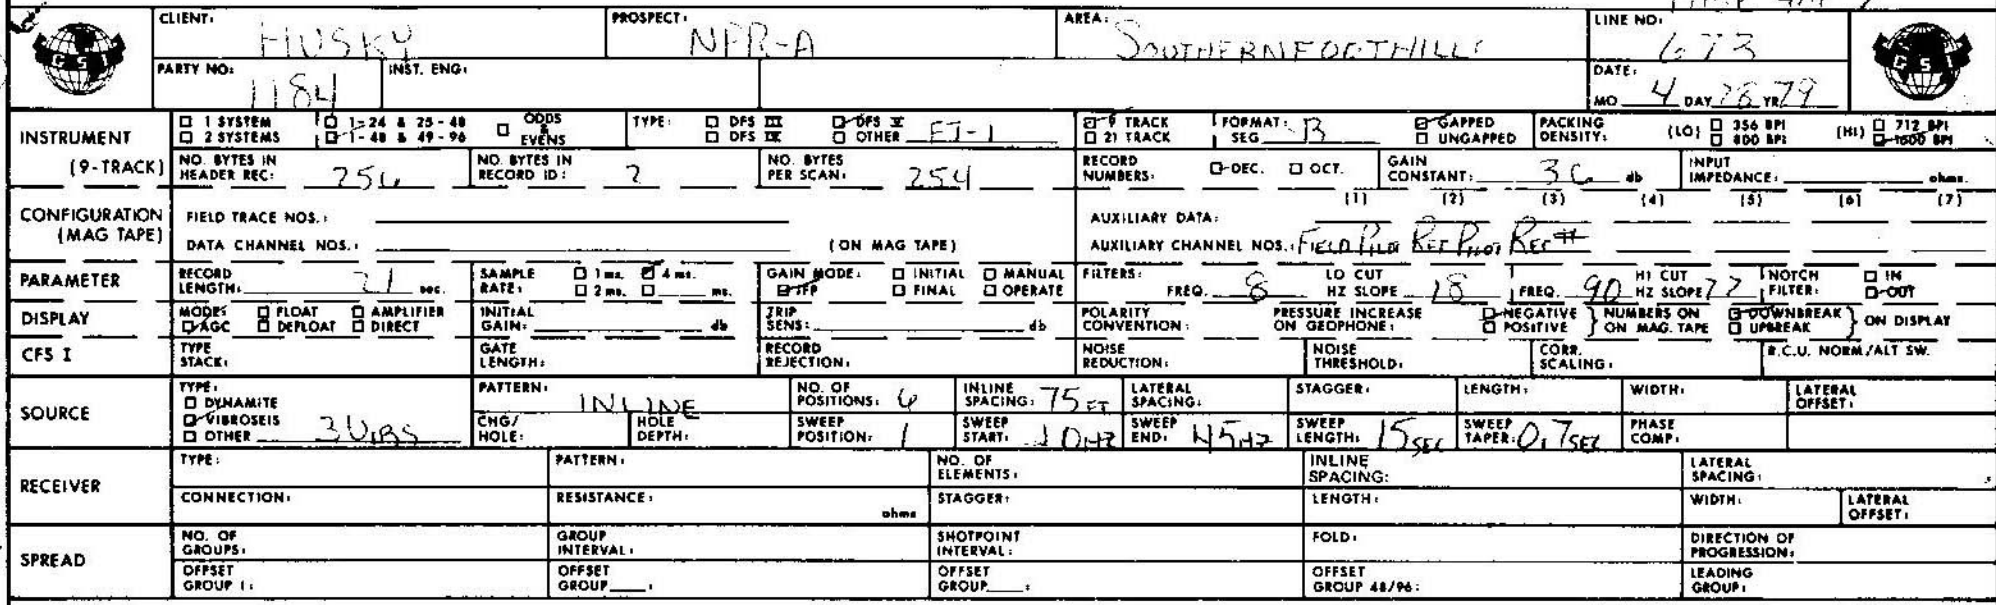 CLIENT: HUSKY PROSPECT: NPR-A AREA: SOUTHERN FOOTHILLS LINE NO: 673
GSI GSI
PARTY NO: 1184 INST. ENG: DATE: MO 4 DAY 28 YR 79
INSTRUMENT (9-TRACK)
□ 1 SYSTEM □ 1-24 & 25-48 □ ODDS & EVENS TYPE: □ DFS III ☑ DFS V ☑ 9 TRACK FORMAT: SEG B ☑ GAPPED PACKING DENSITY: (LO) □ 356 BPI (HI) □ 712 BPI
□ 2 SYSTEMS ☑ 1-48 & 49-96 □ DFS IV □ OTHER FT-1 □ 21 TRACK □ UNGAPPED □ 800 BPI ☑ 1600 BPI
NO. BYTES IN HEADER REC: 256 NO. BYTES IN RECORD ID: 2 NO. BYTES PER SCAN: 254 RECORD NUMBERS: ☑ DEC. □ OCT. GAIN CONSTANT: 36 db INPUT IMPEDANCE: ohms.
CONFIGURATION (MAG TAPE)
(1) (2) (3) (4) (5) (6) (7)
FIELD TRACE NOS.: AUXILIARY DATA:
DATA CHANNEL NOS.: (ON MAG TAPE) AUXILIARY CHANNEL NOS.: FIELD PILOT REF PILOT REF #
PARAMETER RECORD LENGTH: 21 sec. SAMPLE RATE: □ 1 ms. ☑ 4 ms. □ 2 ms. □ ms. GAIN MODE: □ INITIAL □ MANUAL ☑ IFP □ FINAL □ OPERATE FILTERS: FREQ. 8 LO CUT HZ SLOPE 18 FREQ. 90 HI CUT HZ SLOPE 72 NOTCH FILTER: □ IN ☑ OUT
DISPLAY MODE: □ FLOAT □ AMPLIFIER ☑ AGC □ DEFLOAT □ DIRECT INITIAL GAIN: db TRIP SENS: db POLARITY CONVENTION: PRESSURE INCREASE ON GEOPHONE: ☑ NEGATIVE □ POSITIVE } NUMBERS ON ON MAG. TAPE ☑ DOWNBREAK □ UPBREAK } ON DISPLAY
CFS I TYPE STACK: GATE LENGTH: RECORD REJECTION: NOISE REDUCTION: NOISE THRESHOLD: CORR. SCALING: R.C.U. NORM/ALT SW.
SOURCE
TYPE: □ DYNAMITE ☑ VIBROSEIS □ OTHER 3 VIBS PATTERN: INLINE NO. OF POSITIONS: 6 INLINE SPACING: 75 FT LATERAL SPACING: STAGGER: LENGTH: WIDTH: LATERAL OFFSET:
CHG/HOLE: HOLE DEPTH: SWEEP POSITION: 1 SWEEP START: 10 HZ SWEEP END: 45 HZ SWEEP LENGTH: 15 SEC SWEEP TAPER: 0.7 SEC PHASE COMP:
RECEIVER
TYPE: PATTERN: NO. OF ELEMENTS: INLINE SPACING: LATERAL SPACING:
CONNECTION: RESISTANCE: ohms STAGGER: LENGTH: WIDTH: LATERAL OFFSET:
SPREAD
NO. OF GROUPS: GROUP INTERVAL: SHOTPOINT INTERVAL: FOLD: DIRECTION OF PROGRESSION:
OFFSET GROUP 1: OFFSET GROUP : OFFSET GROUP : OFFSET GROUP 48/96: LEADING GROUP: